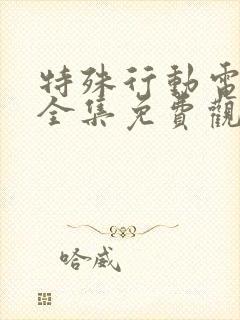 特殊行動電
全集免費觀
哈威